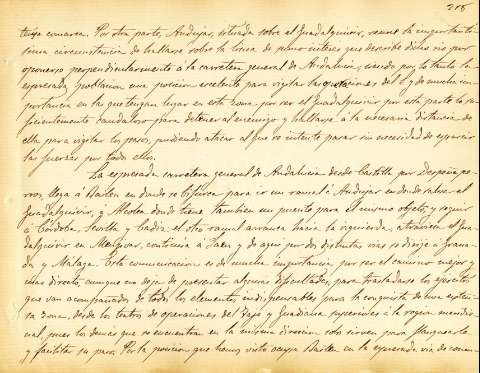 218
tuoja comarca. Por otra parte, Andujar, situada sobre el Guadalquivir, reune la importanti-
sima circunstancia de hallarse sobre la linea de sumo interes que describe dicho rio por
oponerse perpendicularmente á la carretera general de Andalucia, siendo por lo tanto la
expresada poblacion una posicion excelente para vigilar las operaciones del E. y de mucha im-
portancia en las que tengan lugar en esta zona, por ser el Guadalquivir por esta parte lo su-
ficientemente caudaloso para detener al enemigo y hallarse á la necesaria distancia de
ella para vigilar los pasos, pudiendo atacar al que se intente pasar sin necesidad de esparcir
las fuerzas por todos ellos.
La expresada carretera general de Andalucia desde Castilla por Despeñaper-
ros, llega á Bailen en donde se bifurca para ir un ramal á Andujar en donde salva el
Guadalquivir, y Alcolea donde tiene tambien un puente para el mismo objeto, y seguir
á Córdoba, Sevilla y Cadiz: el otro ramal arranca hacia la izquierda, atraviesa el Gua-
dalquivir en Menjivar, continúa á Jaen, y de aqui por dos distintas vias se dirije á Grana-
da y Malaga. Esta comunicacion es de mucha importancia por ser el camino mejor y
mas directo, aunque no deja de presentar algunas dificultades, para trasladarse los ejercitos
que van acompañados de todos los elementos indispensables para la conquista de una exten-
sa zona, desde los teatros de operaciones del Tajo y Guadiana superiores á la region meridio-
nal, pues los demás que se encuentran en la misma direccion solo sirven para flanquearle
y facilitar su paso. Por la posicion que hemos visto ocupa Bailen en la expresada via de comu-